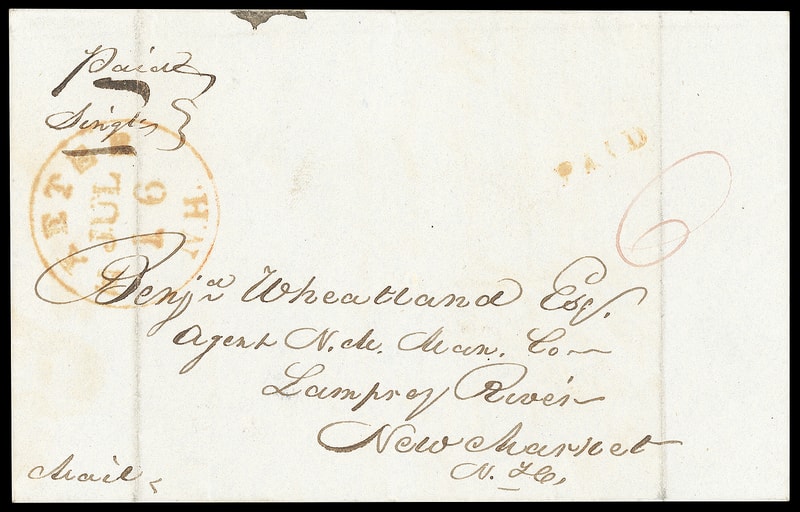 Paid
Single
EXETER N.H.
JUL
16
PAID
6
Benj.ª Wheatland Esq.
Agent N. M. Man. Co
Lamprey River
New Market
N. H.
Mail